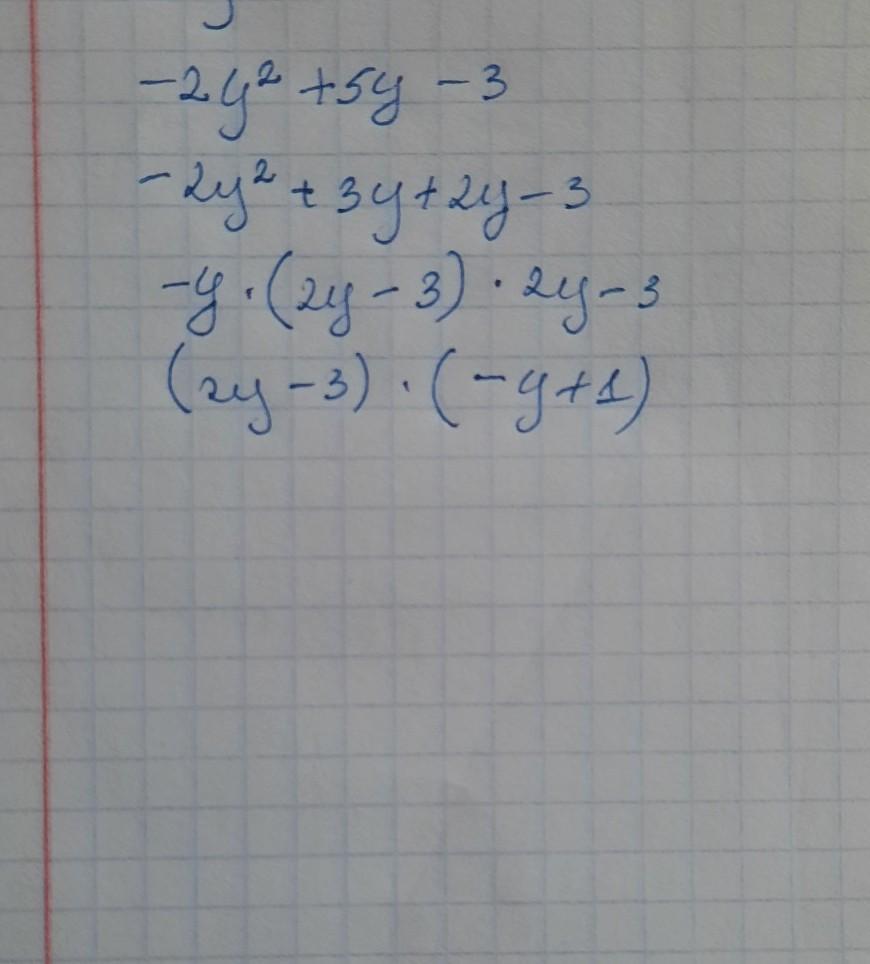 -2y² +5y -3
-2y² + 3y+2y-3
-y·(2y-3)·2y-3
(2y-3)·(-y+1)